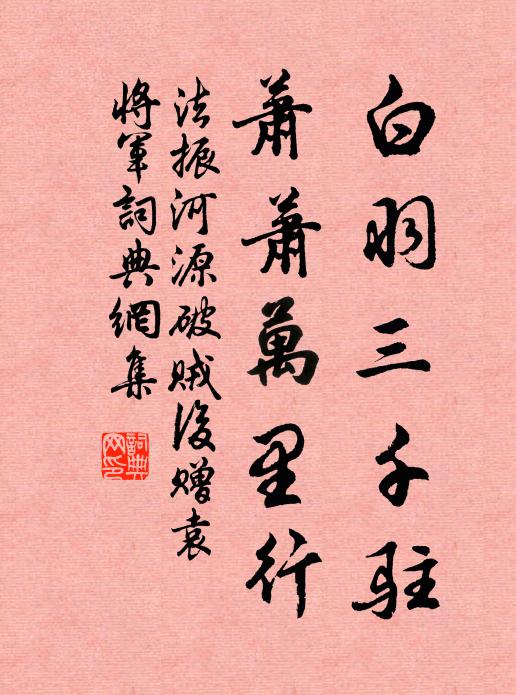 白羽三千駐
蕭蕭萬里行
法振河源破賊後贈袁
將軍詞典網集
詞典
网印